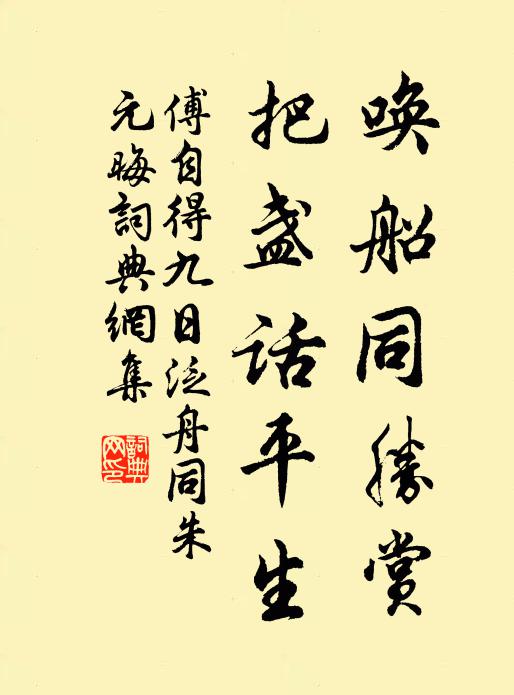 唤船同勝赏
把盏話平生
傅自得九日泛舟同朱
元晦詞典網集
詞典網印